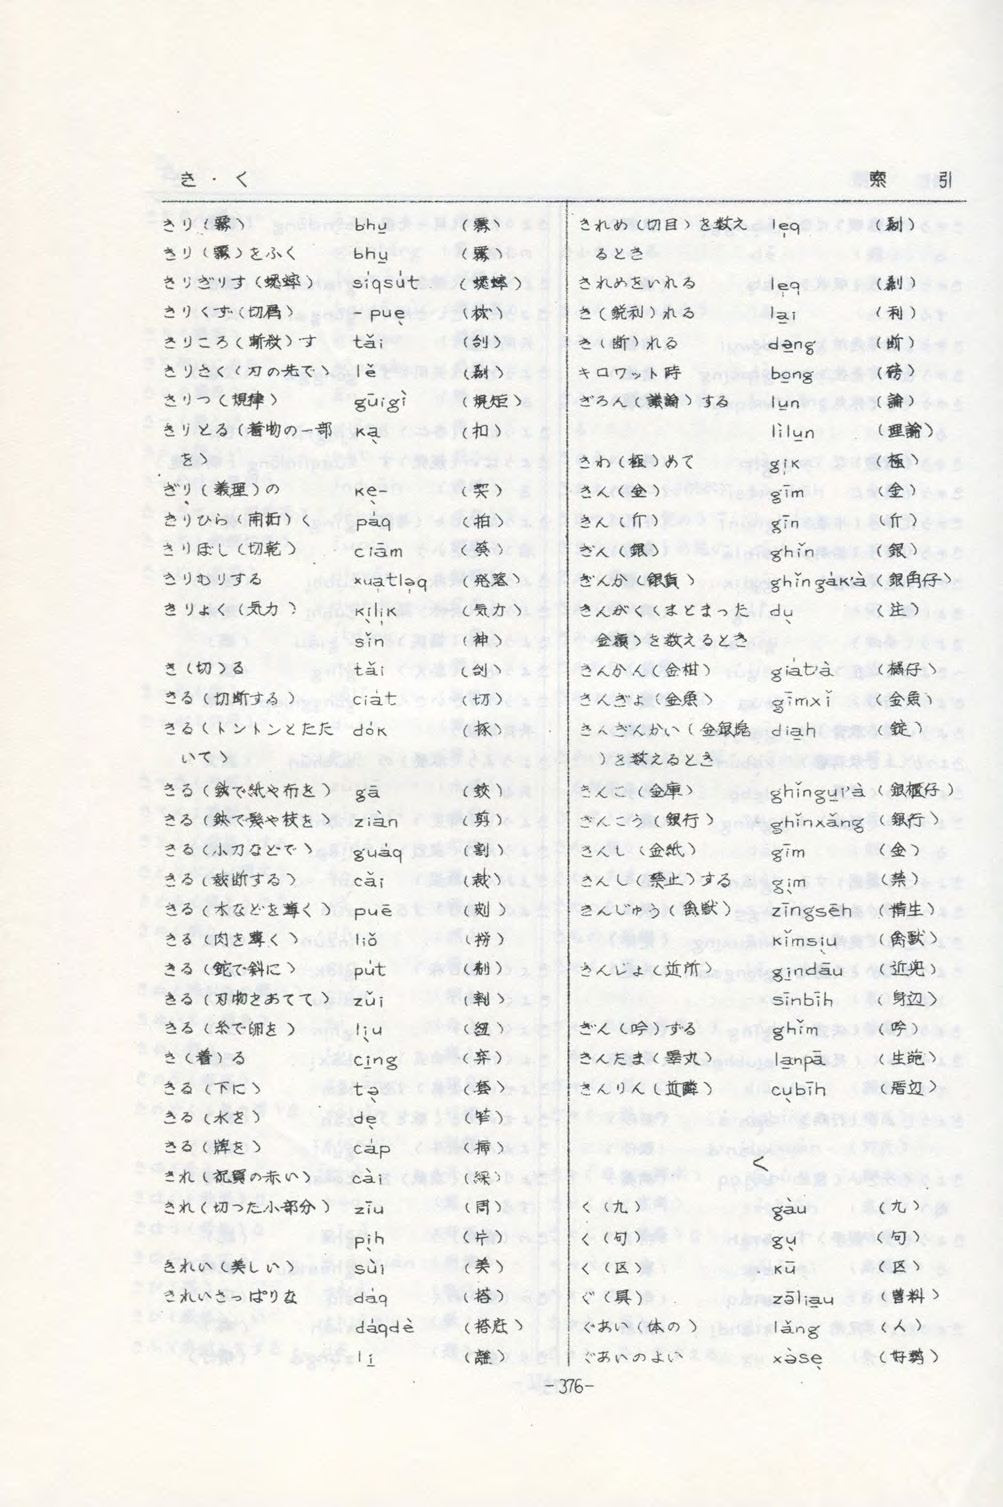 き・く
索引
きり（霧） bhu̲ （霧）
きり（霧）をふく bhu̲ （霧）
きりぎりす（蟋蟀） si̍qsu̍t （蟋蟀）
きりくず（切屑） -puẹ
きりころ（斬殺）す tǎi （刣）
きりさく（刃の先で） lě
きりつ（規律） gūigì （規矩）
きりとる（着物の一部 kạ （扣）
を）
ぎり（義理）の kẹ- （契）
きりひら（開拓）く pa̍q （拍）
きりぼし（切乾） ciām
きりむりする xuạtlǝq
きりょく（気力） kịlịk （気力）
sǐn （神）
き（切）る tǎi （刣）
きる（切断する） cia̍t （切）
きる（トントンとたた do̍k
いて）
きる（鋏で紙や布を） gā （鉸）
きる（鋏で髪や枝を） ziàn （剪）
きる（小刀などで） gua̍q （割）
きる（裁断する） cǎi （裁）
きる（木などを薄く） puē
きる（肉を薄く） liǒ
きる（鉈で斜に） pu̍t
きる（刃物をあてて） zǔi
きる（糸で卵を） lịu
き（着）る ci̲ng
きる（下に） tǝ̣
きる（水を） dẹ
きる（牌を） ca̍p （挿）
きれ（祝賀の赤い） cài （綵）
きれ（切った小部分） zīu
pịh （片）
きれい（美しい） sùi （美）
きれいさっぱりな da̍q （搭）
da̍qdè （搭底）
li̲ （離）
きれめ（切目）を数え lẹq
るとき
きれめをいれる lẹq
き（鋭利）れる la̲i （利）
き（断）れる dǝ̲ng （断）
キロワット時 bo̲ng （磅）
ぎろん（議論）する lu̲n （論）
lìlu̲n （理論）
きわ（極）めて gị̍k （極）
きん（金） gīm （金）
きん（斤） gīn （斤）
ぎん（銀） ghǐn （銀）
ぎんか（銀貨） ghǐnga̍k'à （銀角仔）
きんがく（まとまった dụ （注）
金額）を数えるとき
きんかん（金柑） gia̍t'à （橘仔）
きんぎょ（金魚） gīmxǐ （金魚）
きんぎんかい（金銀塊 dia̲h （錠）
）を数えるとき
きんこ（金庫） ghǐngu̲i'à （銀櫃仔）
ぎんこう（銀行） ghǐnxǎng （銀行）
きんし（金紙） gīm （金）
きんし（禁止）する gịm （禁）
きんじゅう（禽獣） zīngsēh
kǐmsiu （禽獣）
きんじょ（近所） gi̲ndāu （近兜）
sīnbīh （身辺）
ぎん（吟）ずる ghǐm （吟）
きんたま（睾丸） la̲npā （生㞙）
きんりん（近隣） cụbīh （厝辺）
く
く（九） gàu （九）
く（句） gụ （句）
く（区） kū （区）
ぐ（具） zōlia̲u
ぐあい（体の） lǎng （人）
ぐあいのよい xòsẹ （好勢）
-376-